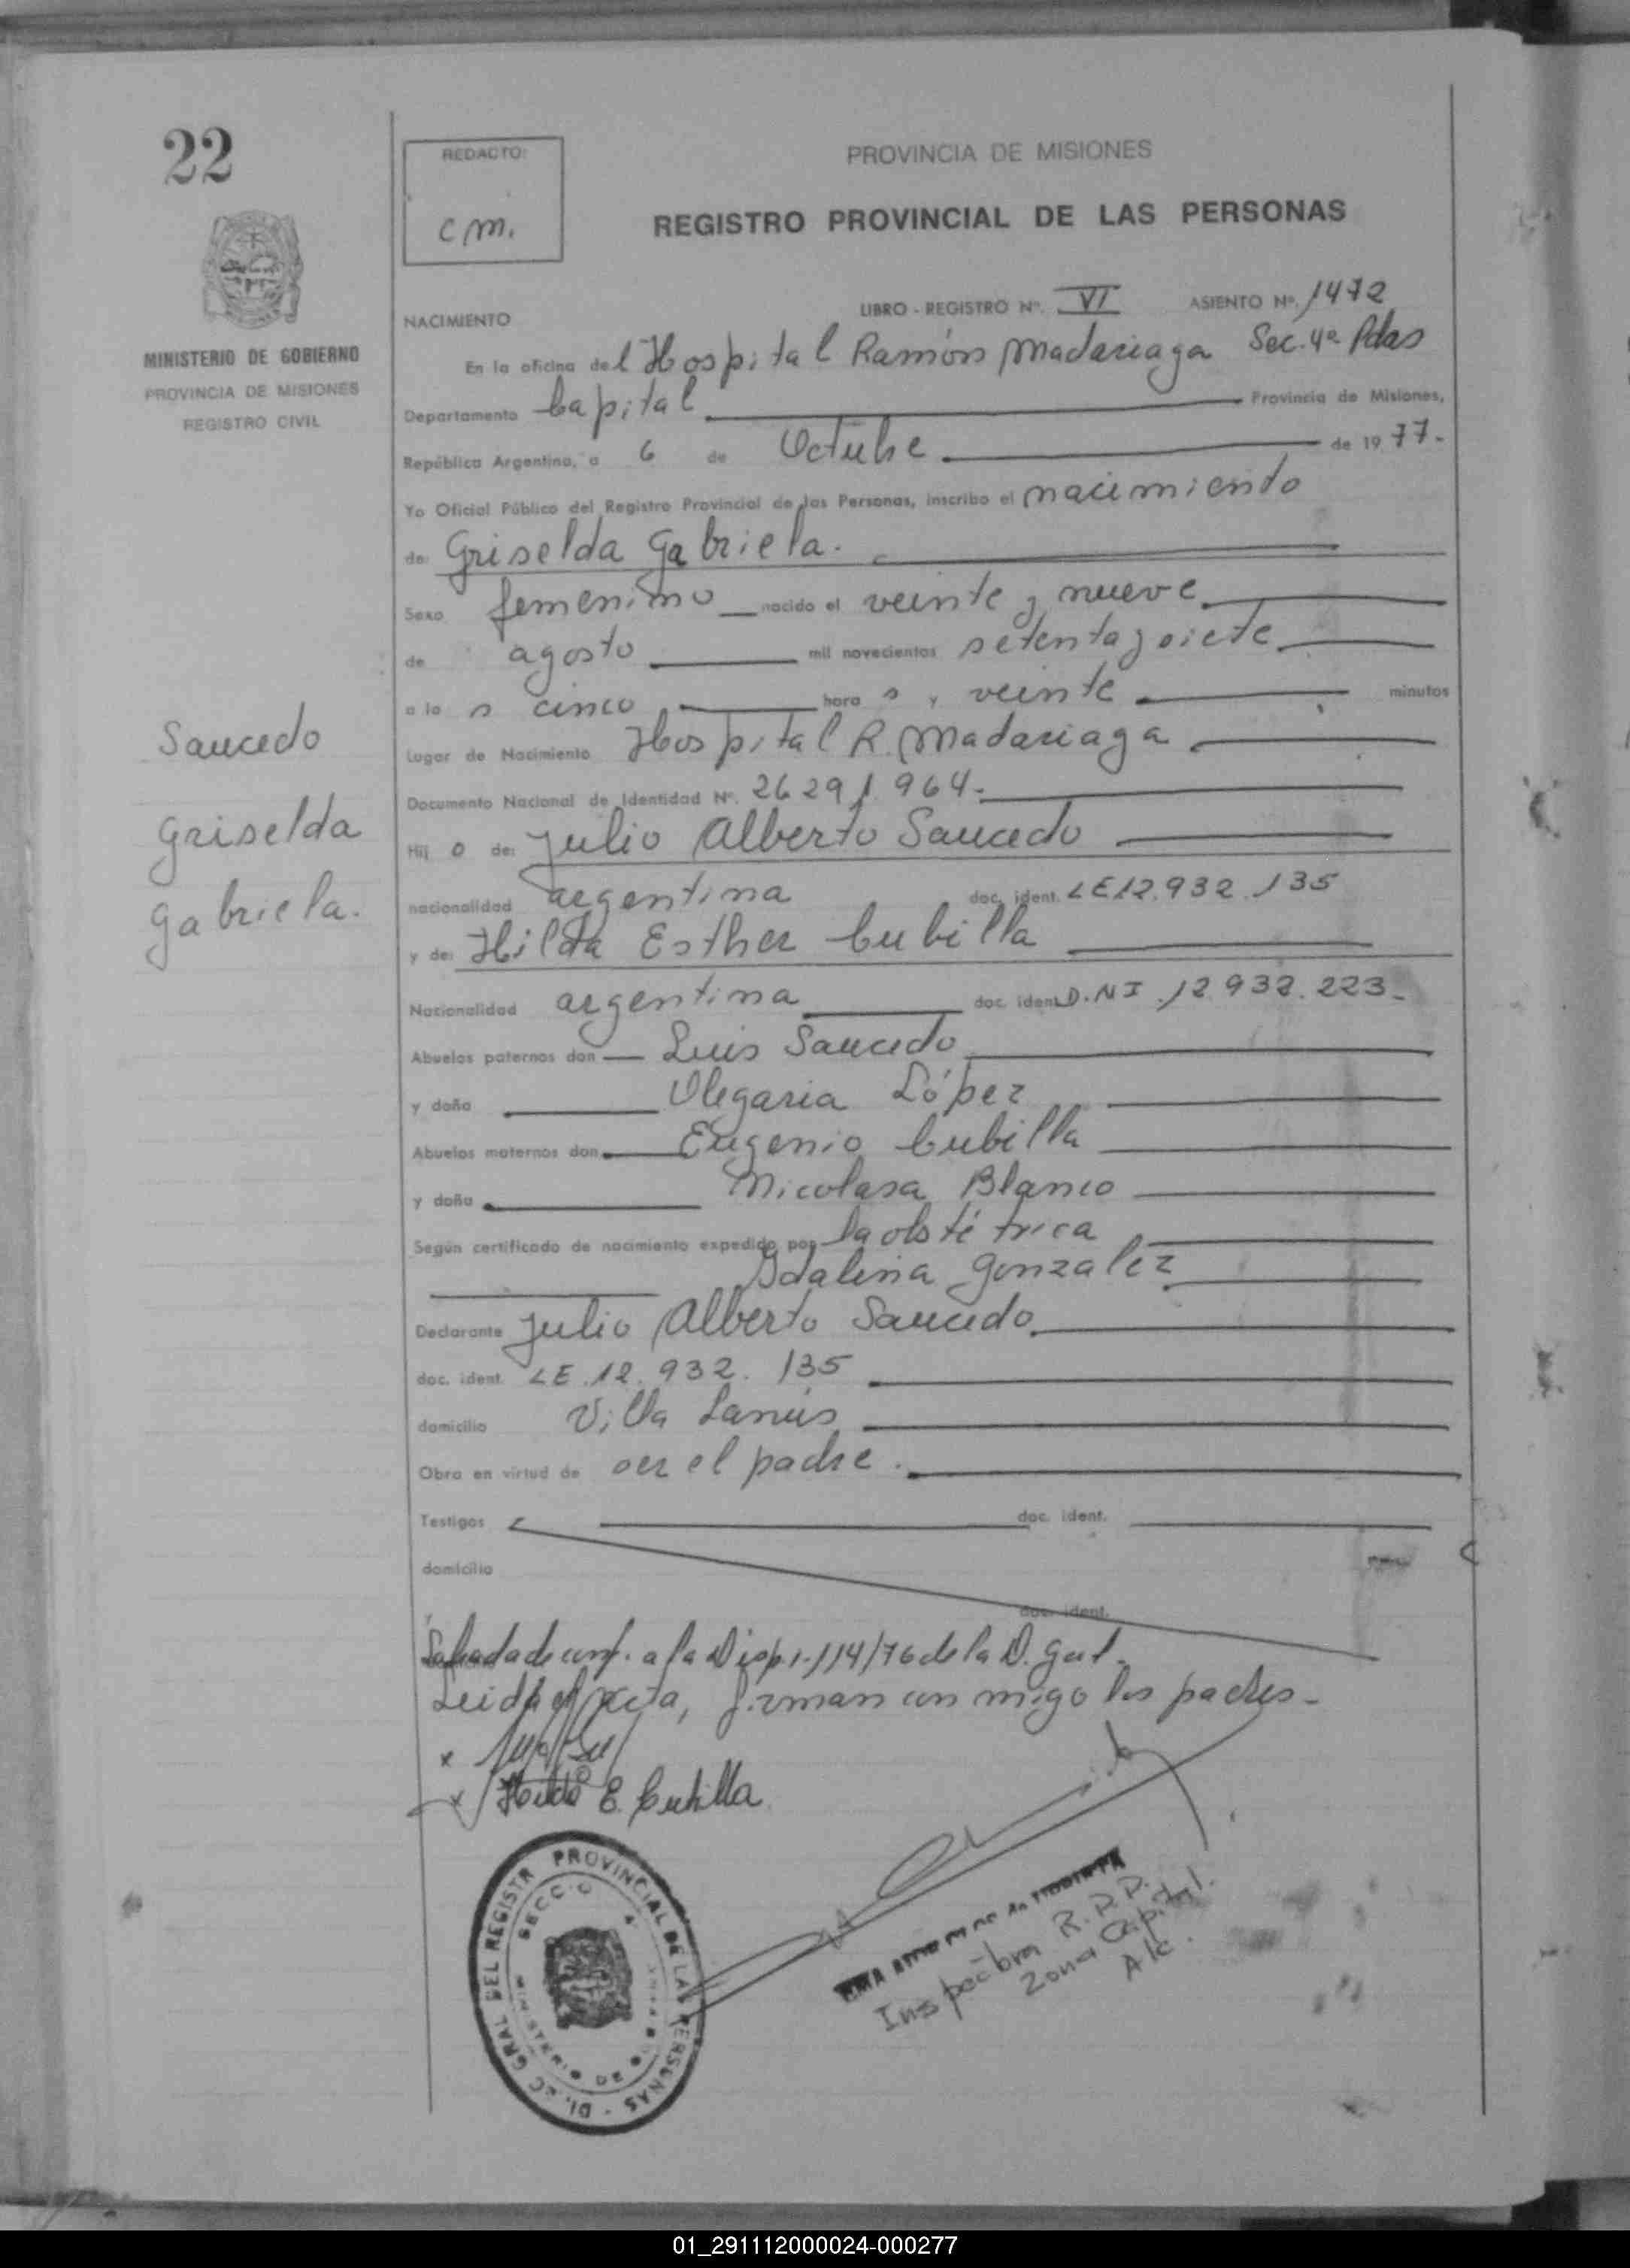 22
REDACTO:
c m.
PROVINCIA DE MISIONES
REGISTRO PROVINCIAL DE LAS PERSONAS
MINISTERIO DE GOBIERNO
PROVINCIA DE MISIONES
REGISTRO CIVIL
NACIMIENTO
LIBRO - REGISTRO Nº. VI ASIENTO Nº. 1472
En la oficina del Hospital Ramón Madariaga Sec. 4ª Pdas
Departamento Capital Provincia de Misiones,
República Argentina, a 6 de Octubre de 1977.-
Yo Oficial Público del Registro Provincial de las Personas, inscribo el nacimiento
de: Griselda Gabriela.
Sexo femenino nacido el veinte y nueve
de agosto mil novecientos setenta y siete
a la s cinco hora s y veinte minutos
Lugar de Nacimiento Hospital R. Madariaga
Documento Nacional de Identidad Nº. 26 291 964.-
Hij o de: Julio Alberto Saucedo
nacionalidad argentina doc. ident. LE 12.932.135
y de: Hilda Esther Cubilla
Nacionalidad argentina doc. ident. D.N I. 12.932.223.-
Abuelos paternos don Luis Saucedo
y doña Olegaria López
Abuelos maternos don Eugenio Cubilla
y doña Nicolasa Blanco
Según certificado de nacimiento expedido por la obstétrica
Idalina Gonzalez
Declarante Julio Alberto Saucedo
doc. ident. LE. 12.932.135
domicilio Villa Lanús
Obra en virtud de ser el padre.
Testigos doc. ident.
domicilio
doc. ident.
de conf. a la Disp. 114/76 de la D. gral.
Leida el acta, firman con migo los padres.-
x
x Hilda E. Cubilla
Saucedo
Griselda
Gabriela.
DEL REGISTR PROVINCIAL DE LAS PERSONAS
SECCIO
Inspectora R.P.P.
Zona Capital.
A/c.
01_291112000024-000277